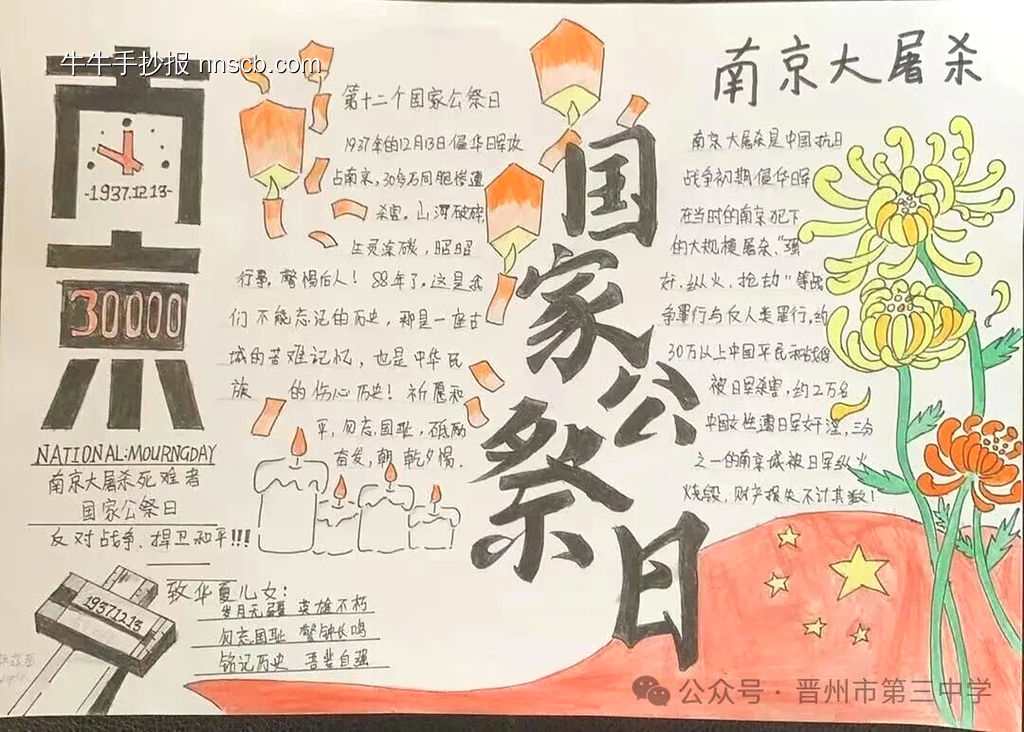 牛牛手抄报 nnscb.com
南京
-1937.12.13-
30000
NATIONAL:MOURNGDAY
南京大屠杀死难者
国家公祭日
反对战争、捍卫和平!!!
1937.12.13
致华夏儿女:
岁月无疆 英雄不朽
勿忘国耻 警钟长鸣
铭记历史 吾辈自强
第十二个国家公祭日
1937年的12月13日侵华日军攻
占南京,30多万同胞惨遭
杀害。山河破碎,
生灵涂碳,昭昭
行事,警惕后人!88年了,这是我
们不能忘记的历史,那是一座古
城的苦难记忆,也是中华民
族 的伤心历史!祈愿和
平,勿忘国耻,砥砺
奋发,朝乾夕惕.
国家公祭日
南京大屠杀
南京大屠杀是中国抗日
战争初期侵华日军
在当时的南京犯下
的大规模屠杀,"强
奸、纵火、抢劫"等战
争罪行与反人类罪行,约
30万以上中国平民和战俘
被日军杀害,约2万名
中国女性遭日军奸淫,三分
之一的南京城被日军纵火
烧毁,财产损失不计其数!
公众号·晋州市第三中学